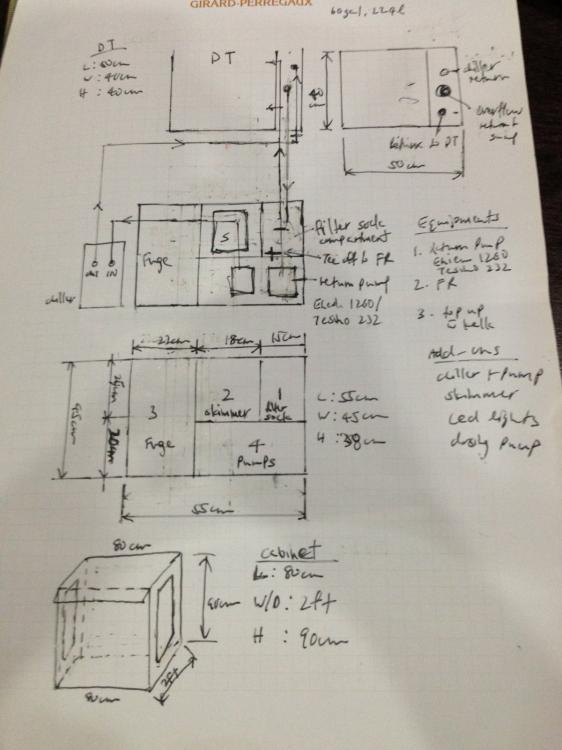 GIRARD-PERREGAUX
60gal, 229l
DT
L: 60cm
W: 40cm
H: 40cm
DT
40
cm
chiller
return
overflow
return
Return to DT
50cm
Fuge
S
out
IN
chiller
Filter sock
compartment
Tee off to FR
return pump
1260/
Equipments
1. Return Pump
1260
2. FR
3. top up
Add-ons
chiller + pump
skimmer
Led lights
dosing pump
22cm
18cm
15cm
25cm
20cm
45cm
3
Fuge
2
skimmer
1
filter
sock
4
Pumps
L: 55cm
W: 45cm
H: 38cm
55cm
80cm
90cm
2ft
80cm
cabinet
L: 80cm
W/D: 2ft
H: 90cm